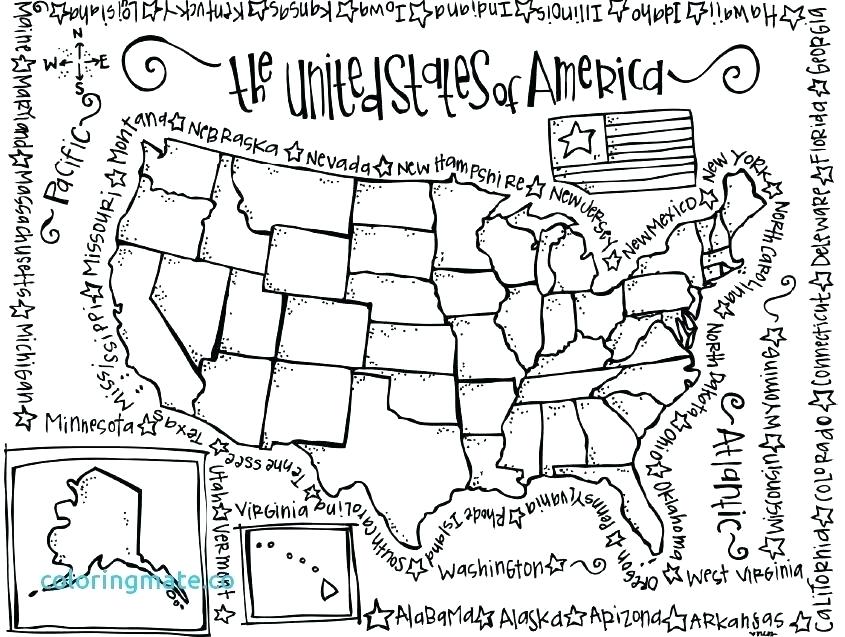 the United States of America
N
W E
S
Pacific
Atlantic
Alabama☆Alaska☆Arizona☆Arkansas☆
California☆Colorado☆Connecticut☆Deleware☆Florida☆Georgia
Hawaii☆Idaho☆Illinois☆Indiana☆Iowa☆Kansas☆Kentucky☆Louisiana
Maine☆Maryland☆Massachusetts☆Michigan☆
Minnesota☆
Mississippi☆Missouri☆Montana☆Nebraska☆Nevada☆New Hampshire☆New Jersey☆New Mexico☆New York☆North Carolina☆North Dakota☆Ohio☆Oklahoma
Oregon☆Pennsylvania☆Rhode Island☆South Carolina☆Tennessee☆Texas
Utah☆Vermont☆
Virginia
Washington☆
☆West Virginia
☆Wisconsin☆Wyoming☆
coloringmate.co